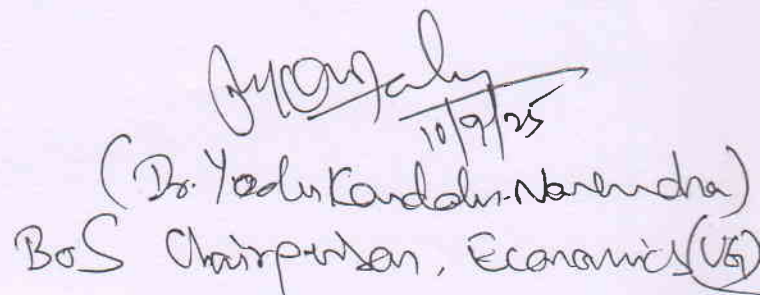 10/9/25
(Dr. Yadu Kandalu Narendra)
BoS Chairperson, Economics (UG)